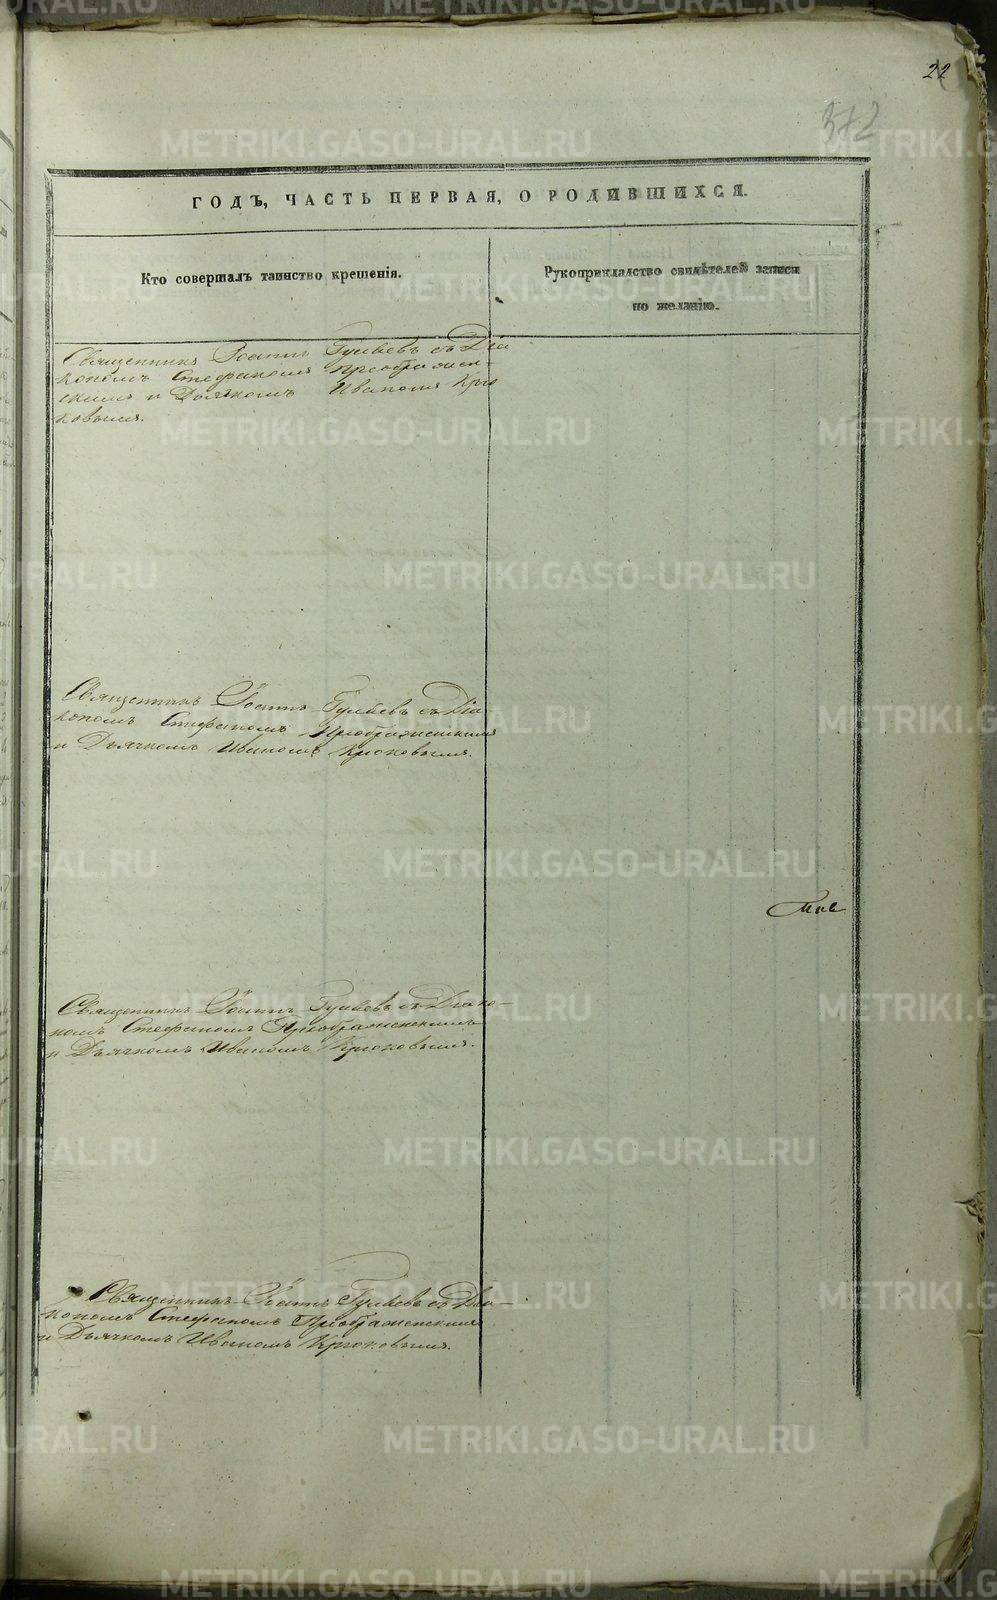 22
372
ГОДЪ, ЧАСТЬ ПЕРВАЯ, О РОДИВШИХСЯ.
Кто совершалъ таинство крещенія.
Рукоприкладство свидѣтелей записи
по желанію.
Священникъ Іоаннъ Гуляевъ съ Діа
кономъ Стефаномъ Преображен-
скимъ и Дьячкомъ Иваномъ Крю
ковымъ.
Священникъ Іоаннъ Гуляевъ съ Діа-
кономъ Стефаномъ Преображенскимъ
и Дьячкомъ Иваномъ Крюковымъ.
Священникъ Іоаннъ Гуляевъ съ Діако-
номъ Стефаномъ Преображенскимъ
и Дьячкомъ Иваномъ Крюковымъ.
Священникъ Іоаннъ Гуляевъ съ Діа-
кономъ Стефаномъ Преображенскимъ
и Дьячкомъ Иваномъ Крюковымъ.
METRIKI.GASO-URAL.RU